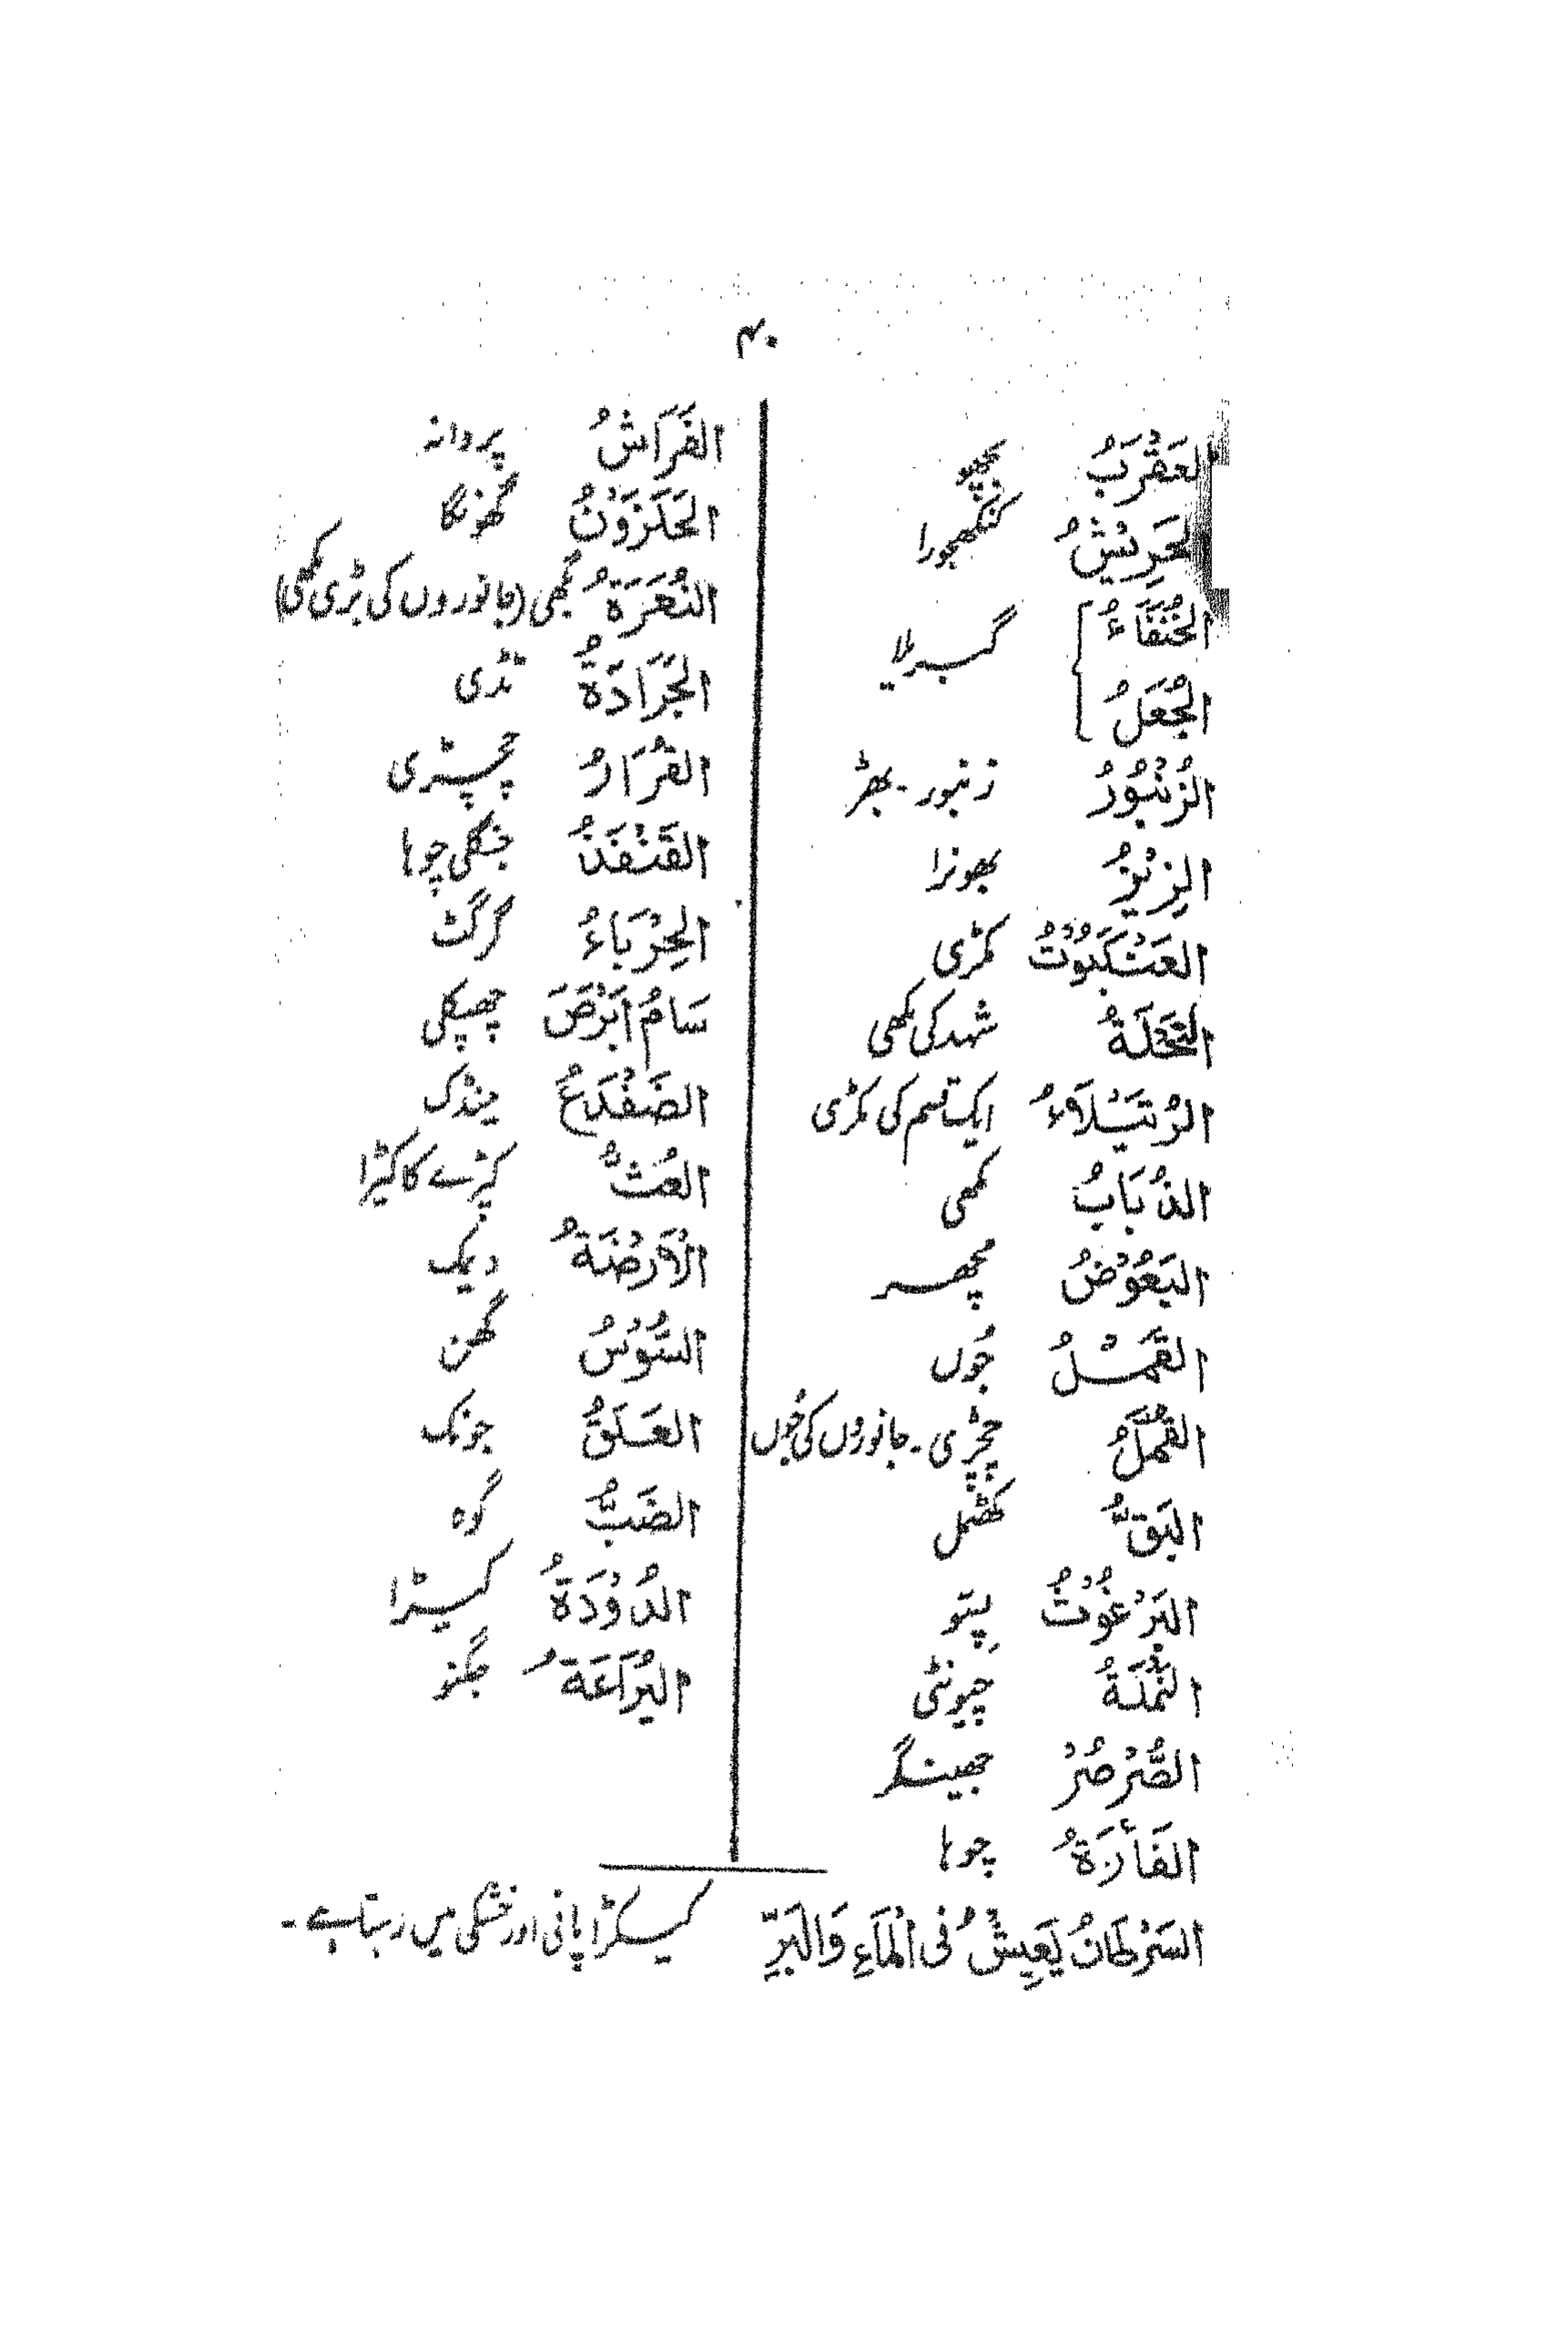 ۴۰
العَقْرَبُ بچھو
الحَرِيْشُ کنکھجورا
الخُنْفَاءُ
الجُعَلُ گبریلا
الزُنْبُوْرُ زنبور۔بھڑ
الزِيْزُ بھونرا
العَنْكَبُوْتُ مکڑی
النَّحْلَةُ شہد کی مکھی
الرُتَيْلَاءُ ایک قسم کی مکڑی
الذُبَابُ مکھی
البَعُوْضُ مچھر
القَمْلُ جُوں
القُمَّلُ چچڑی۔جانوروں کی جُوں
البَقُّ کھٹمل
البَرْغُوْثُ پِسّو
النَّمْلَةُ چیونٹی
الصُّرْصُرْ جھینگر
الفَأرَةُ چوہا
الفَرَاشُ پروانہ
الحَلَزَوْنُ گھونگا
النُعَرَةُ مکھی (جانوروں کی بڑی مکھی)
الجَرَادَةُ ٹڈی
القُرَادُ چچڑی
القَنْفَذُ جنگلی چوہا
الحِرْبَاءُ گرگٹ
سَامُ اَبْرَصَ چھپکلی
الضَفْدَعُ مینڈک
العُثُّ کپڑے کا کیڑا
الْاَرْضَةُ دیمک
السُّوْسُ گھن
العَلَقُ جونک
الضَبُّ گوہ
الدُوْدَةُ کیڑا
اليُرَاعَةُ جگنو
السَرْطَانُ يَعِيْشُ فى الْمَاءِ وَالبَرِّ کیکڑا پانی اور خشکی میں رہتا ہے۔